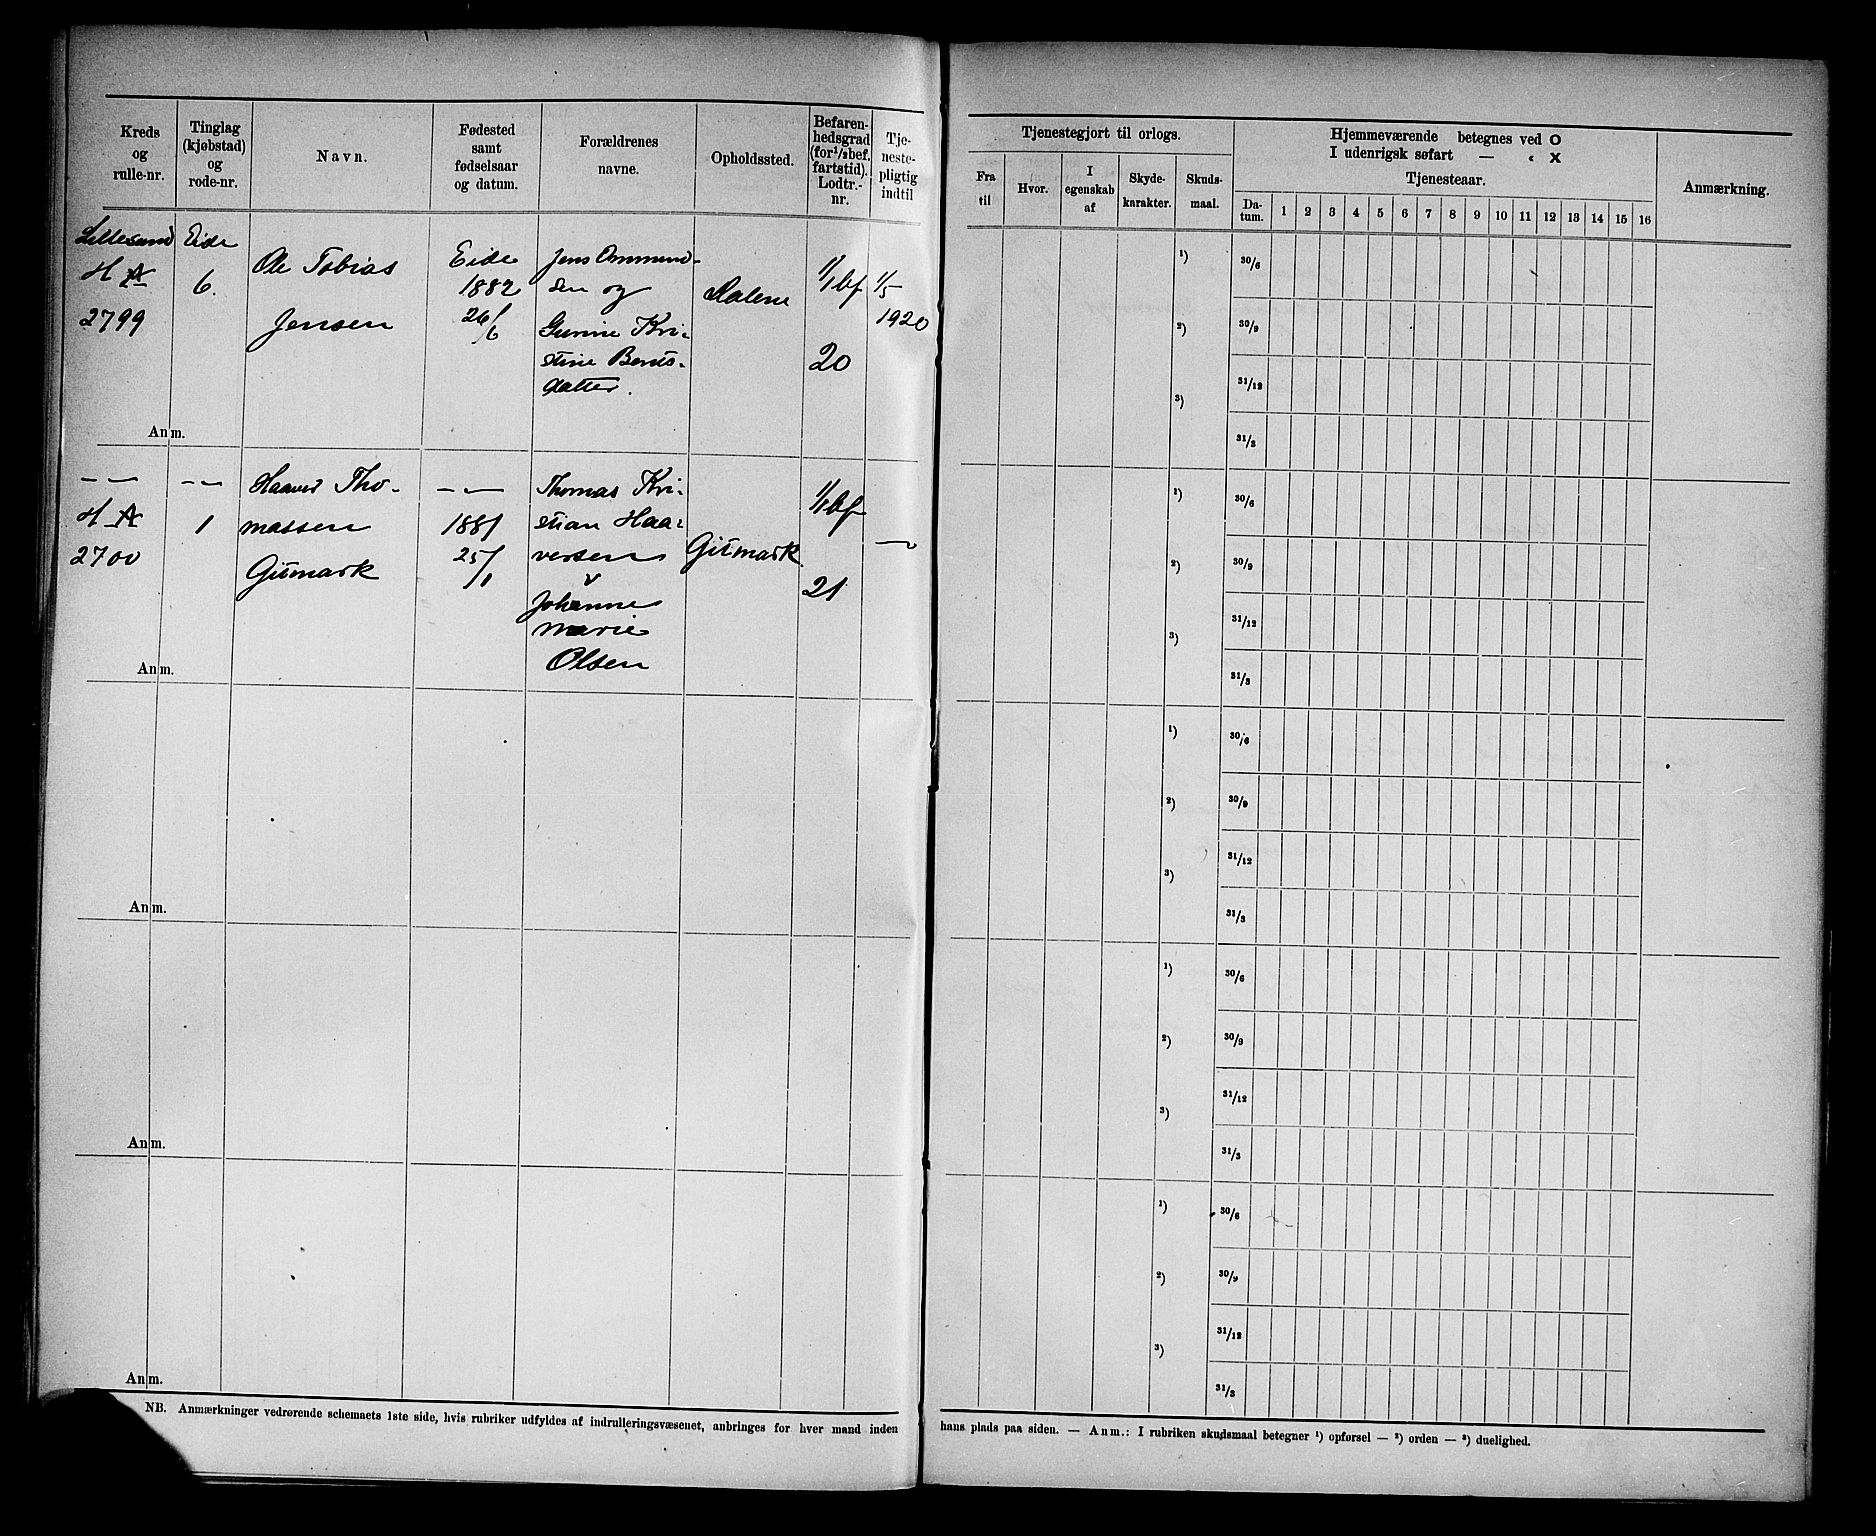 Kreds og rulle-nr.
Tinglag (kjøbstad) og rode-nr.
Navn.
Fødested samt fødselsaar og datum.
Forældrenes navne.
Opholdssted.
Befaren-hedsgrad (for 1/2 bef. fartstid). Lodtr.-nr.
Tje-neste-pligtig indtil
Lillesand
H A
2799
Eide
6.
Ole Tobias
Jensen
Eide
1882
26/6
Jens Ommund-
sen og
Gunine Kri-
stine Bents-
datter.
Dalene
1/1 bf
20
1/5
1920
Anm.
— —
H A
2700
— —
1
Haaver Tho-
massen
Gitmark
— —
1881
25/1
Thomas Kri-
stian Haa-
versen
v
Johanne
Marie
Olsen
Gitmark.
1/1 bf
21
—
Anm.
Anm.
Anm.
Anm.
NB. Anmærkninger vedrørende schemaets 1ste side, hvis rubriker udfyldes af indrulleringsvæsenet, anbringes for hver mand inden
Tjenestegjort til orlogs.
Fra til
Hvor.
I egenskab af
Skyde-karakter.
Skuds-maal.
Hjemmeværende betegnes ved O
I udenrigsk søfart — " X
Tjenesteaar.
Da-tum. 1 2 3 4 5 6 7 8 9 10 11 12 13 14 15 16
Anmærkning.
1) 30/6
2) 30/9
31/12
3)
31/3
1) 30/6
2) 30/9
31/12
3)
31/3
1) 30/6
2) 30/9
31/12
3)
31/3
1) 30/6
2) 30/9
31/12
3)
31/3
1) 30/6
2) 30/9
31/12
3)
31/3
hans plads paa siden. — Anm.: I rubriken skudsmaal betegner 1) opførsel — 2) orden — 3) duelighed.